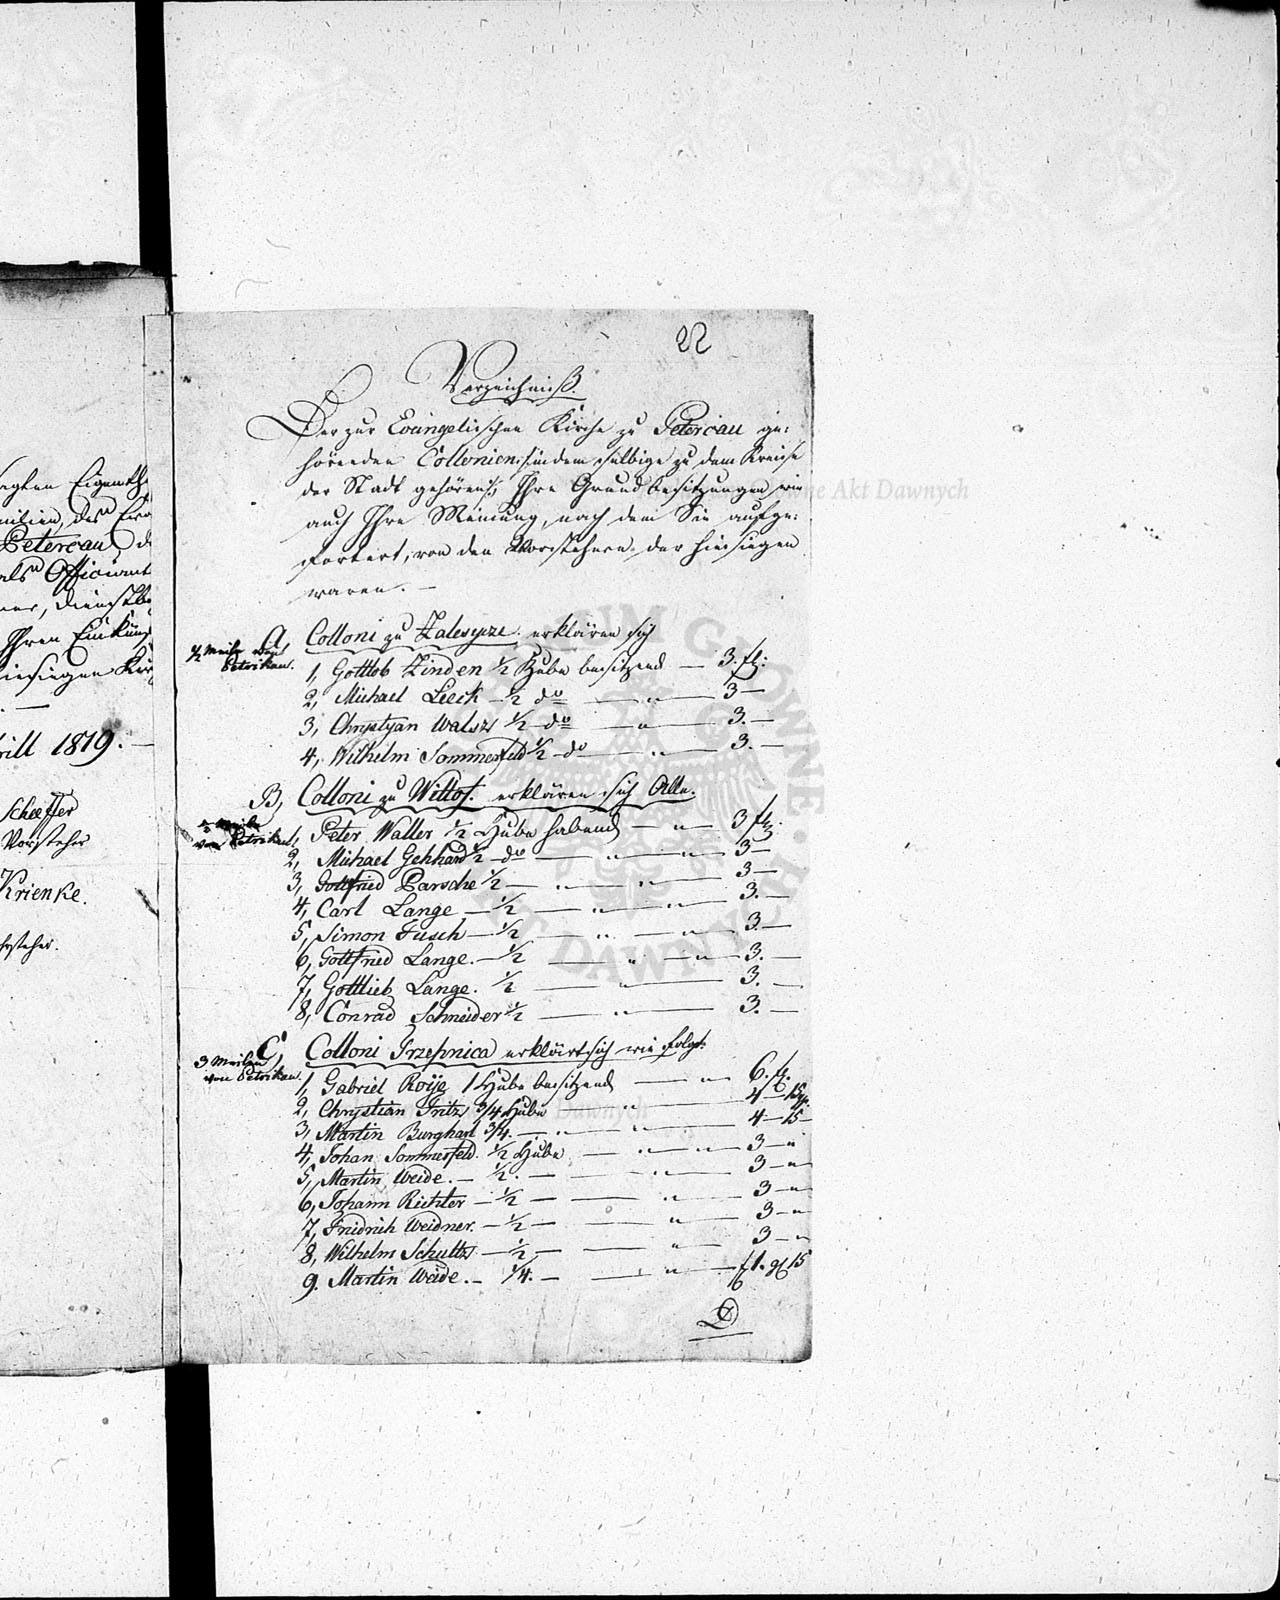 egten Eigenth
milien, des Eva
Petercau, d
als Officiant
ner, dienstbe
Ihren Einkünf
hiesigen Kir
rill 1819.
Scheffer
Vorsteher
Krienke.
orsteher.
22
Verzeichniß.
Der zur Evangelischen Kirche zu Petercau ge=
hörenden Collonien, /: indem selbige zu dem Kreise
der Stadt gehören :/ Ihre Grundbesitzungen, wie
auch Ihre Meinung, nach dem Sie aufge=
fortert, von den Vorstehern der hiesigen
waren. —
A, Colloni zu Zalesycze. erklären sich
1/2 Meile von
Petrikau.
1, Gottlob Zinden 1/2 Hube besitzend — 3. fl:
2, Michael Leeck — 1/2 do — " — 3 —
3, Chrystyan Walszs 1/2 do — " — 3. —
4, Wilhelm Sommerfeld 1/2 do — " — 3. —
B, Colloni zu Wittof. erklären sich Alle.
Meile
von Petrikau.
1, Peter Waller 1/2 Hube habend — " — 3 fl:
2, Michael Gehhard 1/2 do — " — " — 3 —
3, Gottfried Parsche 1/2 — " — " — 3 —
4, Carl Lange — 1/2 — " — " — 3. —
5, Simon Fusch — 1/2 — " — " — 3. —
6, Gottfried Lange. — 1/2 — " — " — 3. —
7, Gottlieb Lange. 1/2 — " — 3. —
8, Conrad Schneider 1/2 — " — 3. —
C, Colloni Przepnica erklärt sich wie folgt:
3 Meilen
von Petrikau.
1, Gabriel Roije 1 Hube besitzend — " — 6. fl.
2, Chrystian Fritzs 3/4 Hube — " — 4 — 15 gr.
3, Martin Burghart 3/4. — " — " — 4 — 15 —
4, Johan Sommerfeld. 1/2 Hube — " — " — 3 — "
5, Martin Weide. — 1/2. — " — 3 — "
6, Johann Richter — 1/2 — " — 3 — "
7, Fridrich Weidner. — 1/2 — " — 3 — "
8, Wilhelm Schultzs — 1/2 — " — 3 — "
9. Martin Weide. — 1/4. — " — fl 1. gl 15
D
Akt Dawnych